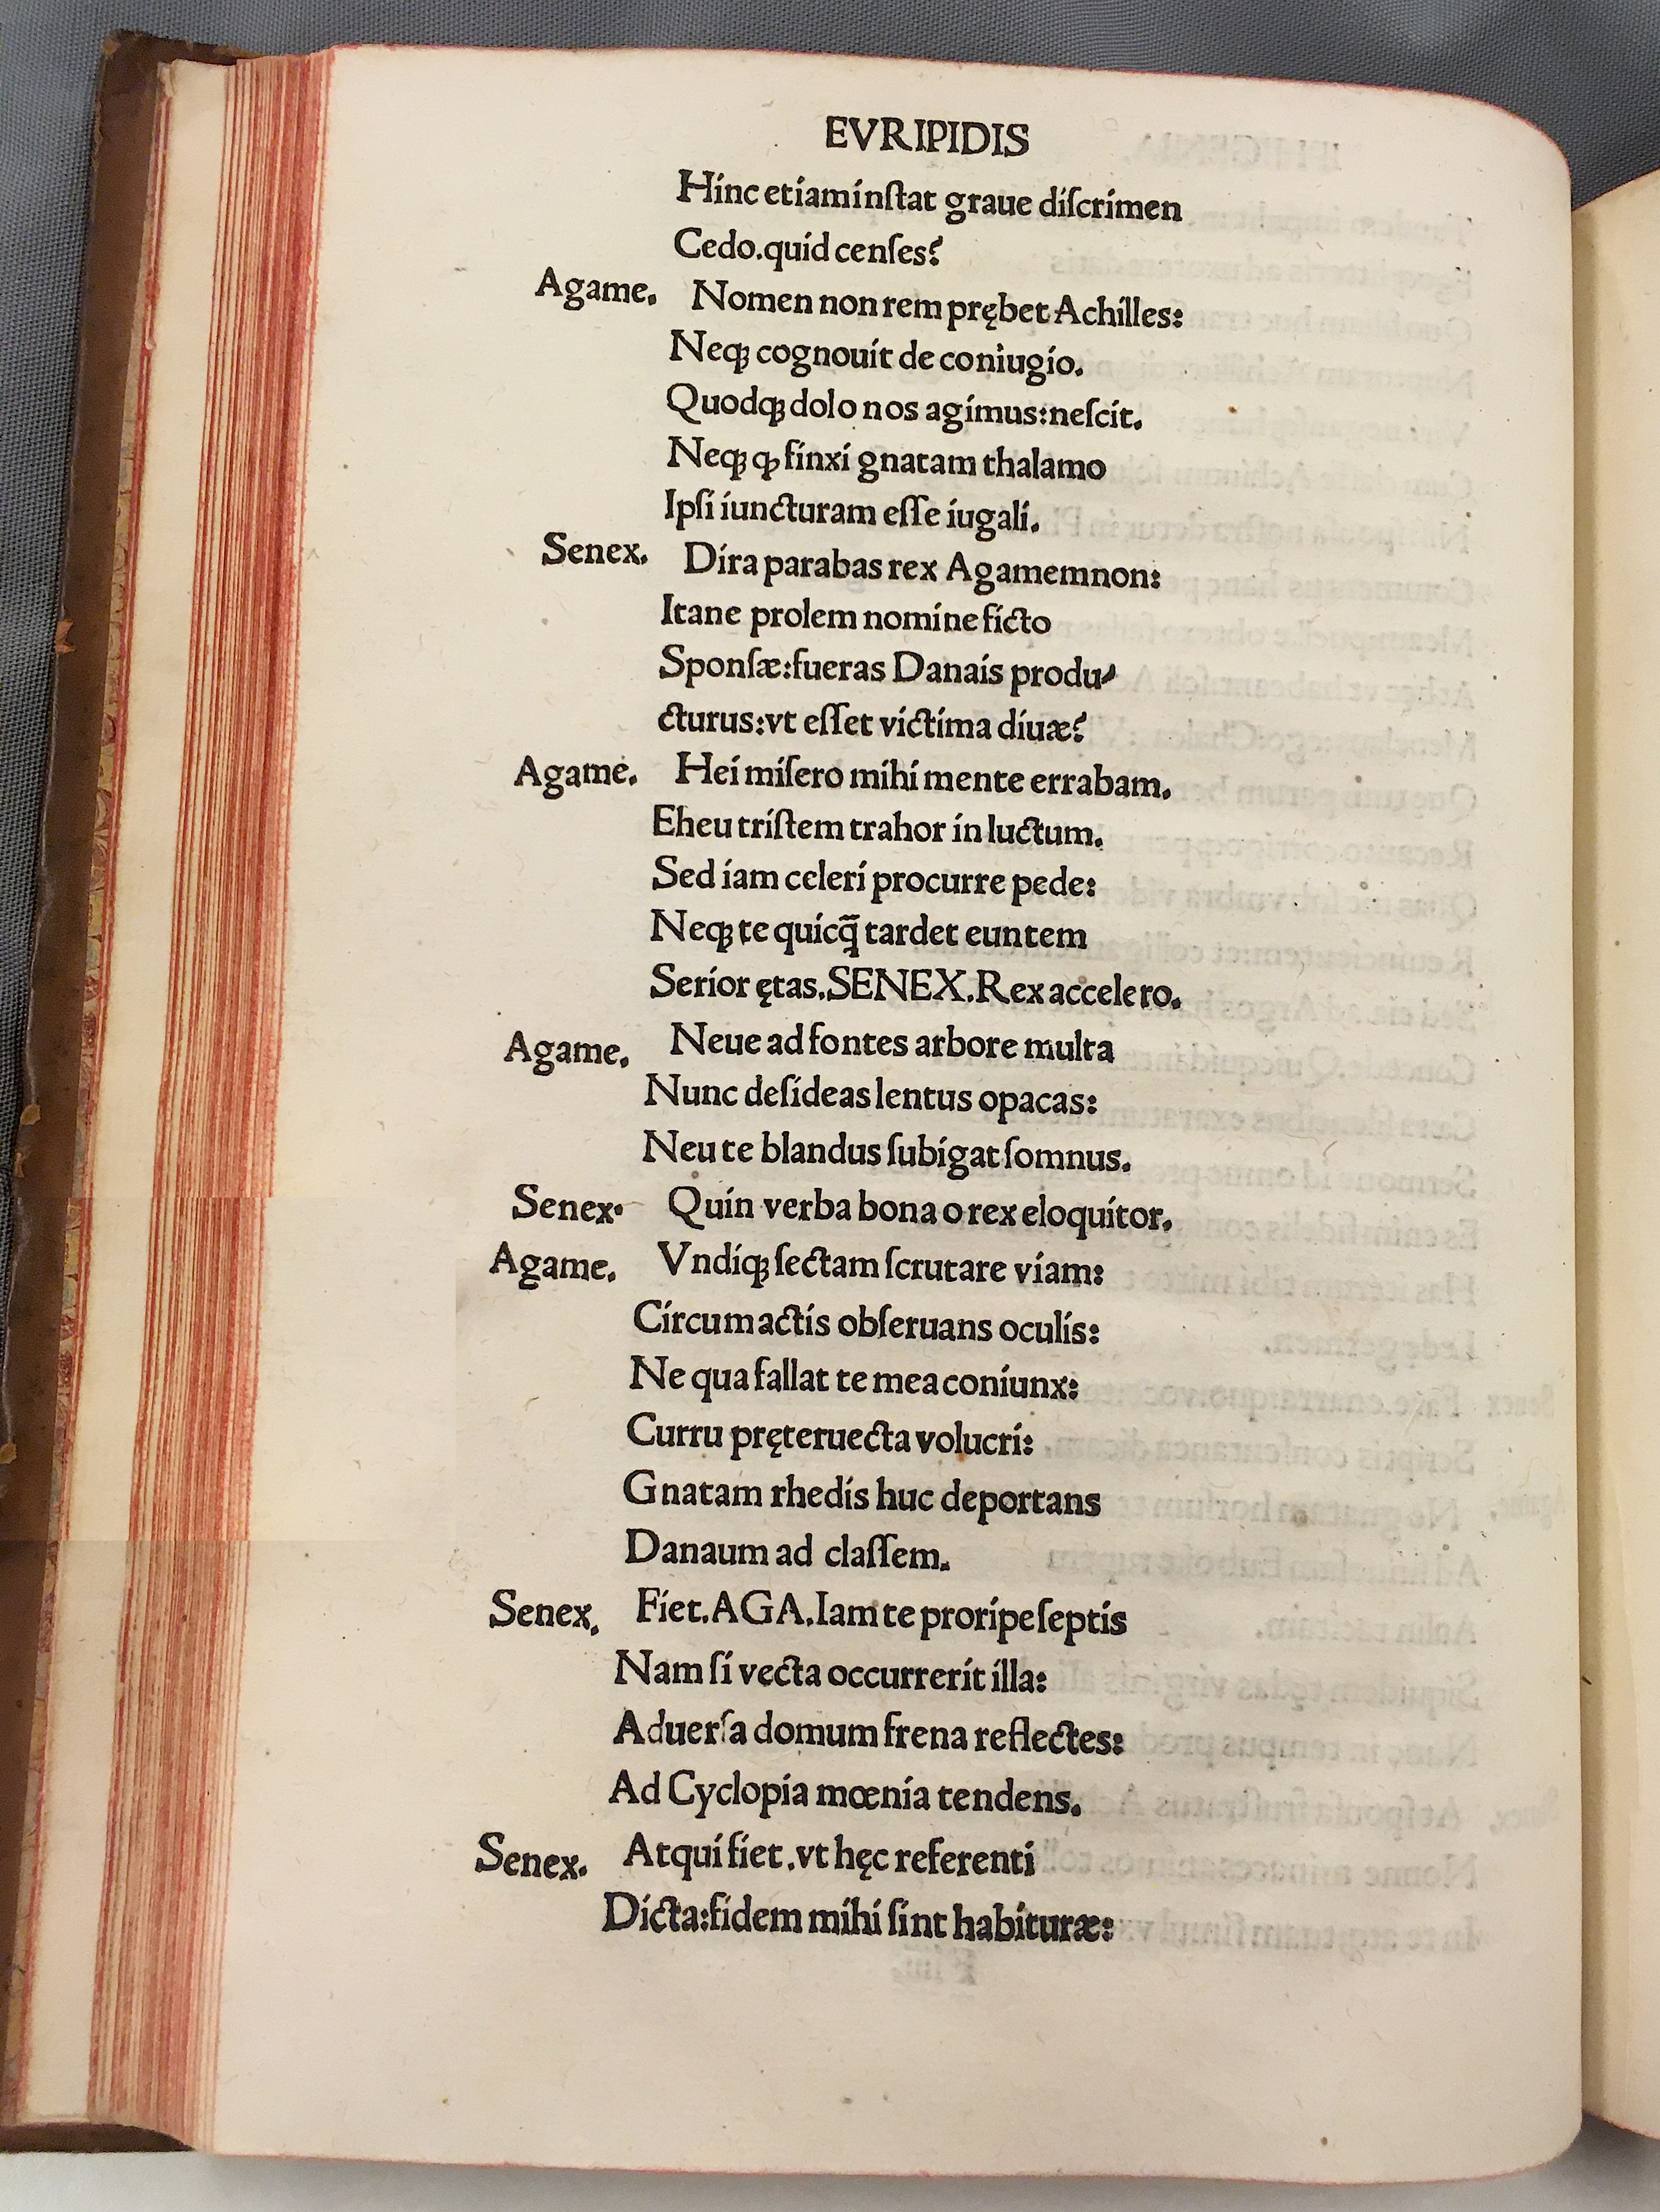 EVRIPIDIS
Hinc etiam inſtat graue diſcrimen
Cedo.quid cenſes?
Agame. Nomen non rem prębet Achilles:
Neqꝫ cognouit de coniugio.
Quodqꝫ dolo nos agimus:neſcit.
Neqꝫ ꝙ finxi gnatam thalamo
Ipſi iuncturam eſſe iugali.
Senex. Dira parabas rex Agamemnon:
Itane prolem nomine ficto
Sponſæ:fueras Danais produ⸗
cturus:vt eſſet victima diuæ?
Agame. Hei miſero mihi mente errabam.
Eheu triſtem trahor in luctum.
Sed iam celeri procurre pede:
Neqꝫ te quicq̄ tardet euntem
Serior ętas.SENEX.Rex accelero.
Agame. Neue ad fontes arbore multa
Nunc deſideas lentus opacas:
Neu te blandus ſubigat ſomnus.
Senex. Quin verba bona o rex eloquitor.
Agame. Vndiqꝫ ſectam ſcrutare viam:
Circumactis obſeruans oculis:
Ne qua fallat te mea coniunx:
Curru pręteruecta volucri:
Gnatam rhedis huc deportans
Danaum ad claſſem.
Senex. Fiet.AGA.Iam te proripe ſeptis
Nam ſi vecta occurrerit illa:
Aduerſa domum frena reflectes:
Ad Cyclopia mœnia tendens.
Senex. Atqui fiet.vt hęc referenti
Dicta:fidem mihi ſint habituræ: